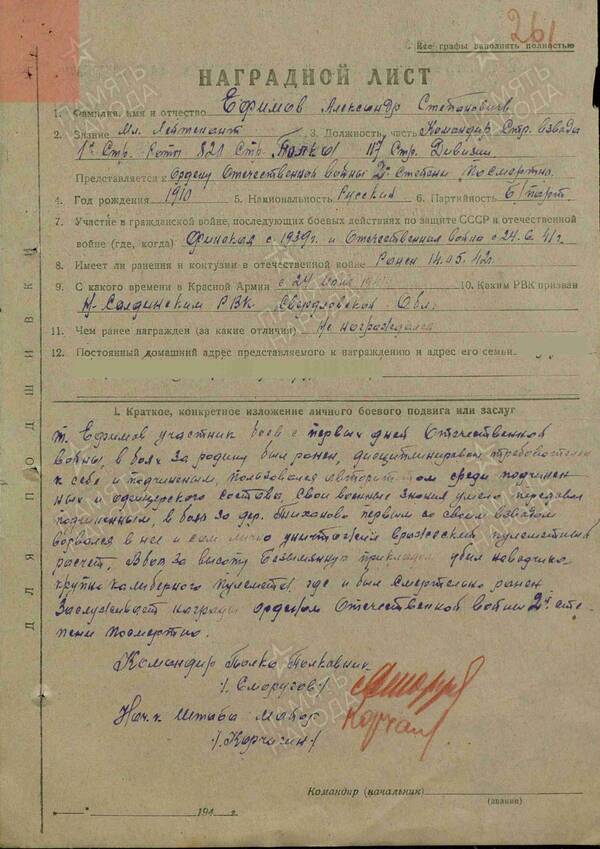 261
Все графы заполнять полностью
НАГРАДНОЙ ЛИСТ
1. Фамилия, имя и отчество Ефимов Александр Степанович
2. Звание Мл. Лейтенант 3. Должность, часть Командир Стр. взвода
1й Стр. Роты 821 Стр. Полка 117 Стр. Дивизии
Представляется к Ордену Отечественной войны 2й Степени Посмертно.
4. Год рождения 1910 5. Национальность Русский 6. Партийность б/парт
7. Участие в гражданской войне, последующих боевых действиях по защите СССР и отечественной
войне (где, когда) Финская с 1939г. и Отечественная война с 24.6.41г.
8. Имеет ли ранения и контузии в отечественной войне Ранен 14.05.42г.
9. С какого времени в Красной Армии с 24 июня 10. Каким РВК призван
Н-Салдинским РВК Свердловской Обл.
11. Чем ранее награжден (за какие отличия) Не награждался
12. Постоянный домашний адрес представляемого к награждению и адрес его семьи
I. Краткое, конкретное изложение личного боевого подвига или заслуг
т. Ефимов участник боев с первых дней Отечественной
войны, в боях за родину был ранен, дисциплинирован требователен
к себе и подчиненым, пользовался авторитетом среди подчинен
ных и офицерского состава, Свои военные знания умело передавал
подчиненным, в бою за дер. Тиханово первым со своим взводом
ворвался в нее и сам лично уничтожил вражеский пулеметный
расчет, В бою за высоту Безымянную прикладом убил наводчика
крупно калиберного пулемета, где и был смертельно ранен
Заслуживает награды орденом Отечественной войны 2й сте
пени посмертно.
Командир Полка Полковник
/. Сморугов ./
Нач. Штаба Майор
./. Корчагин ./
Командир (начальник)
(звание)
194 г.
ДЛЯ ПОДШИВКИ
ПАМЯТЬ НАРОДА